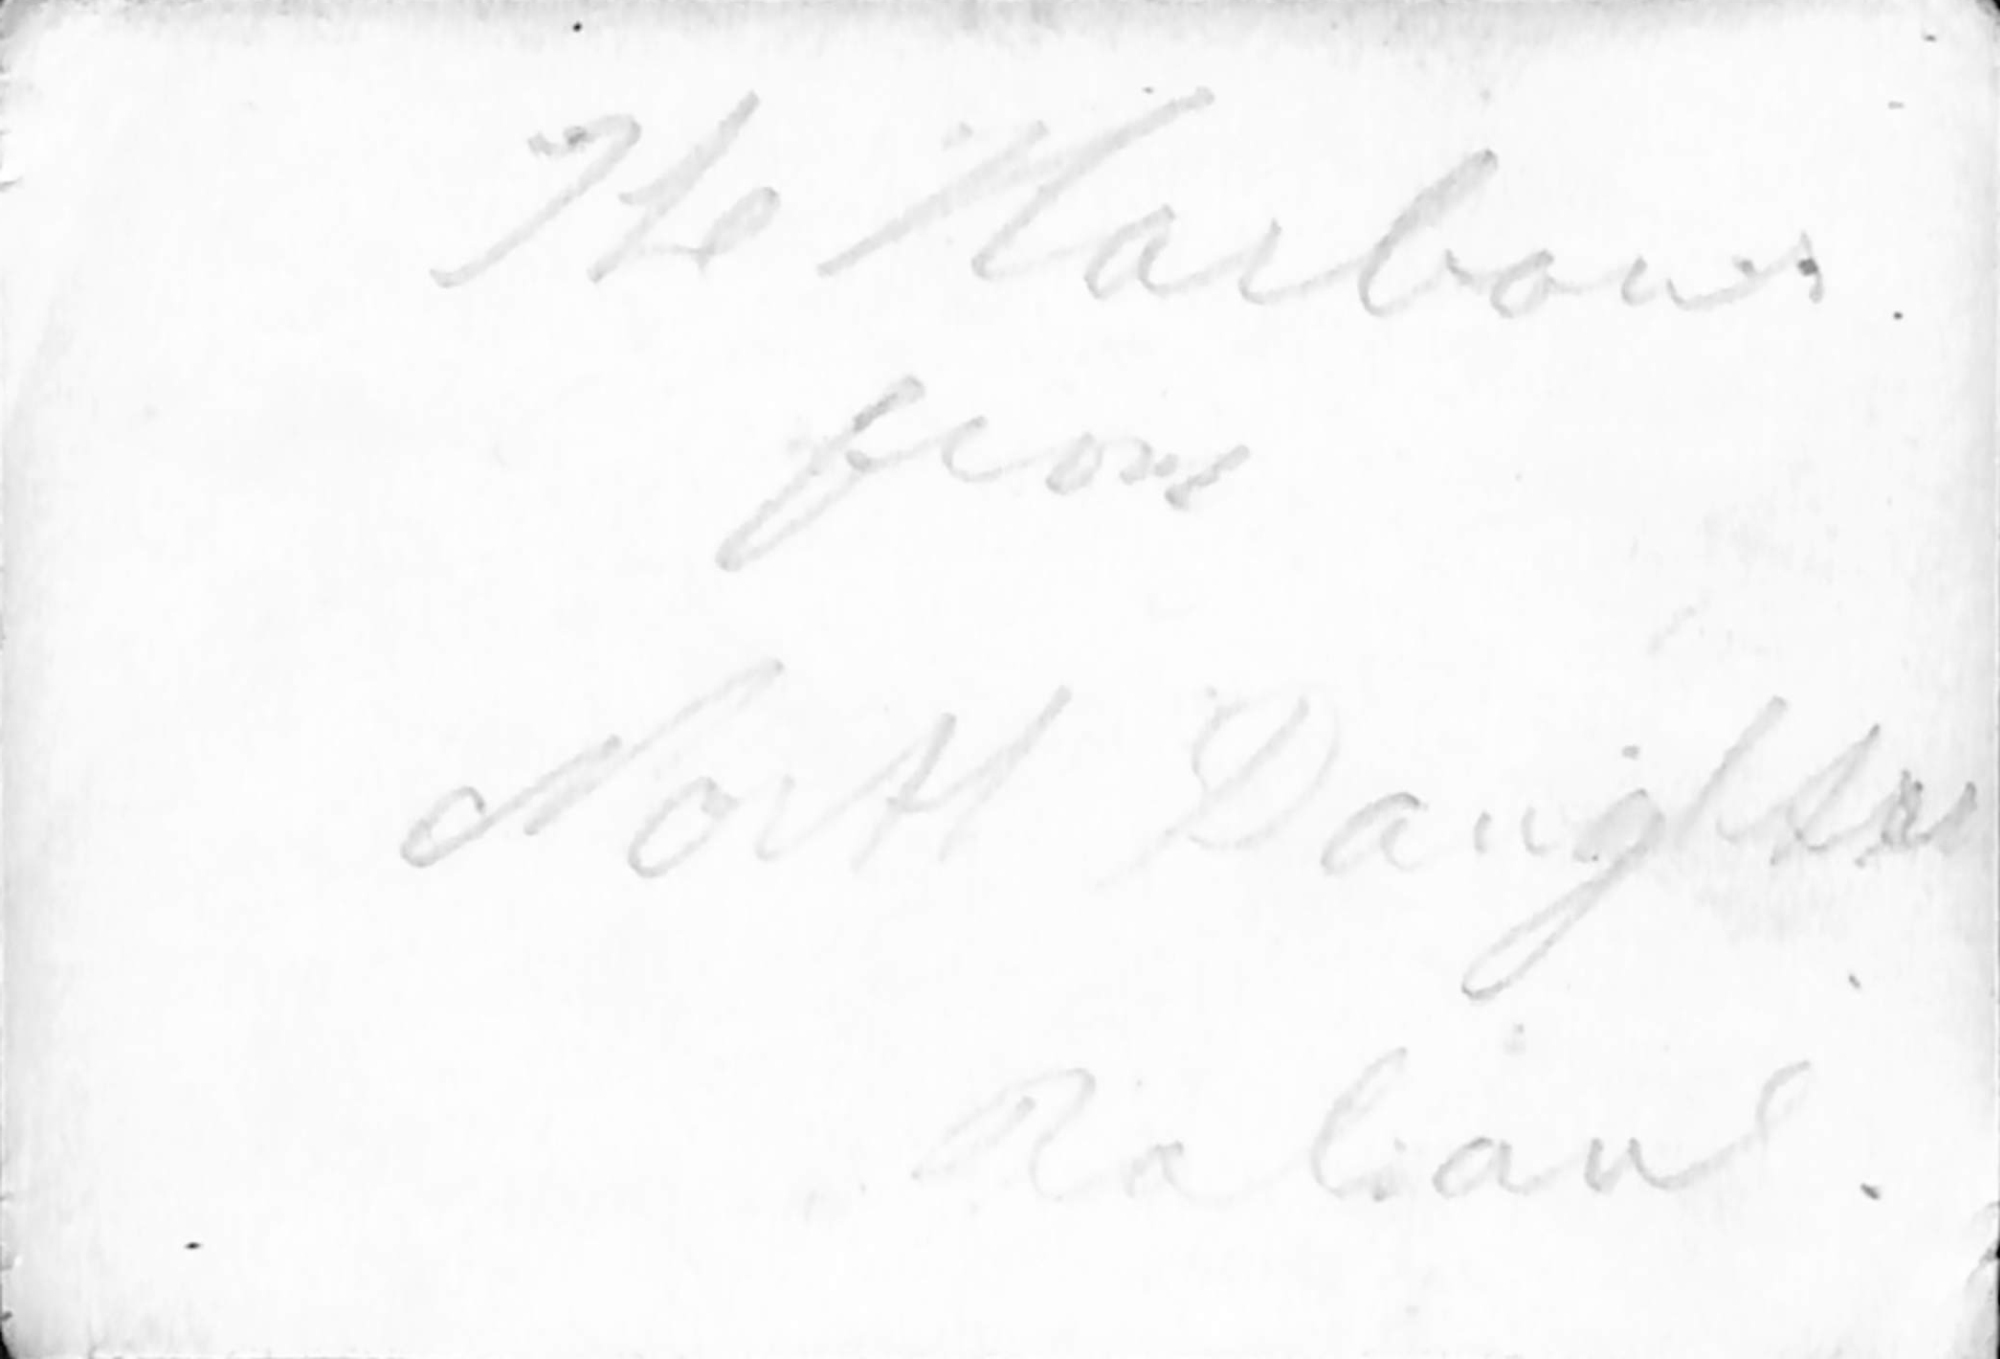 The Harbour
from
North Daughter
Rabaul.